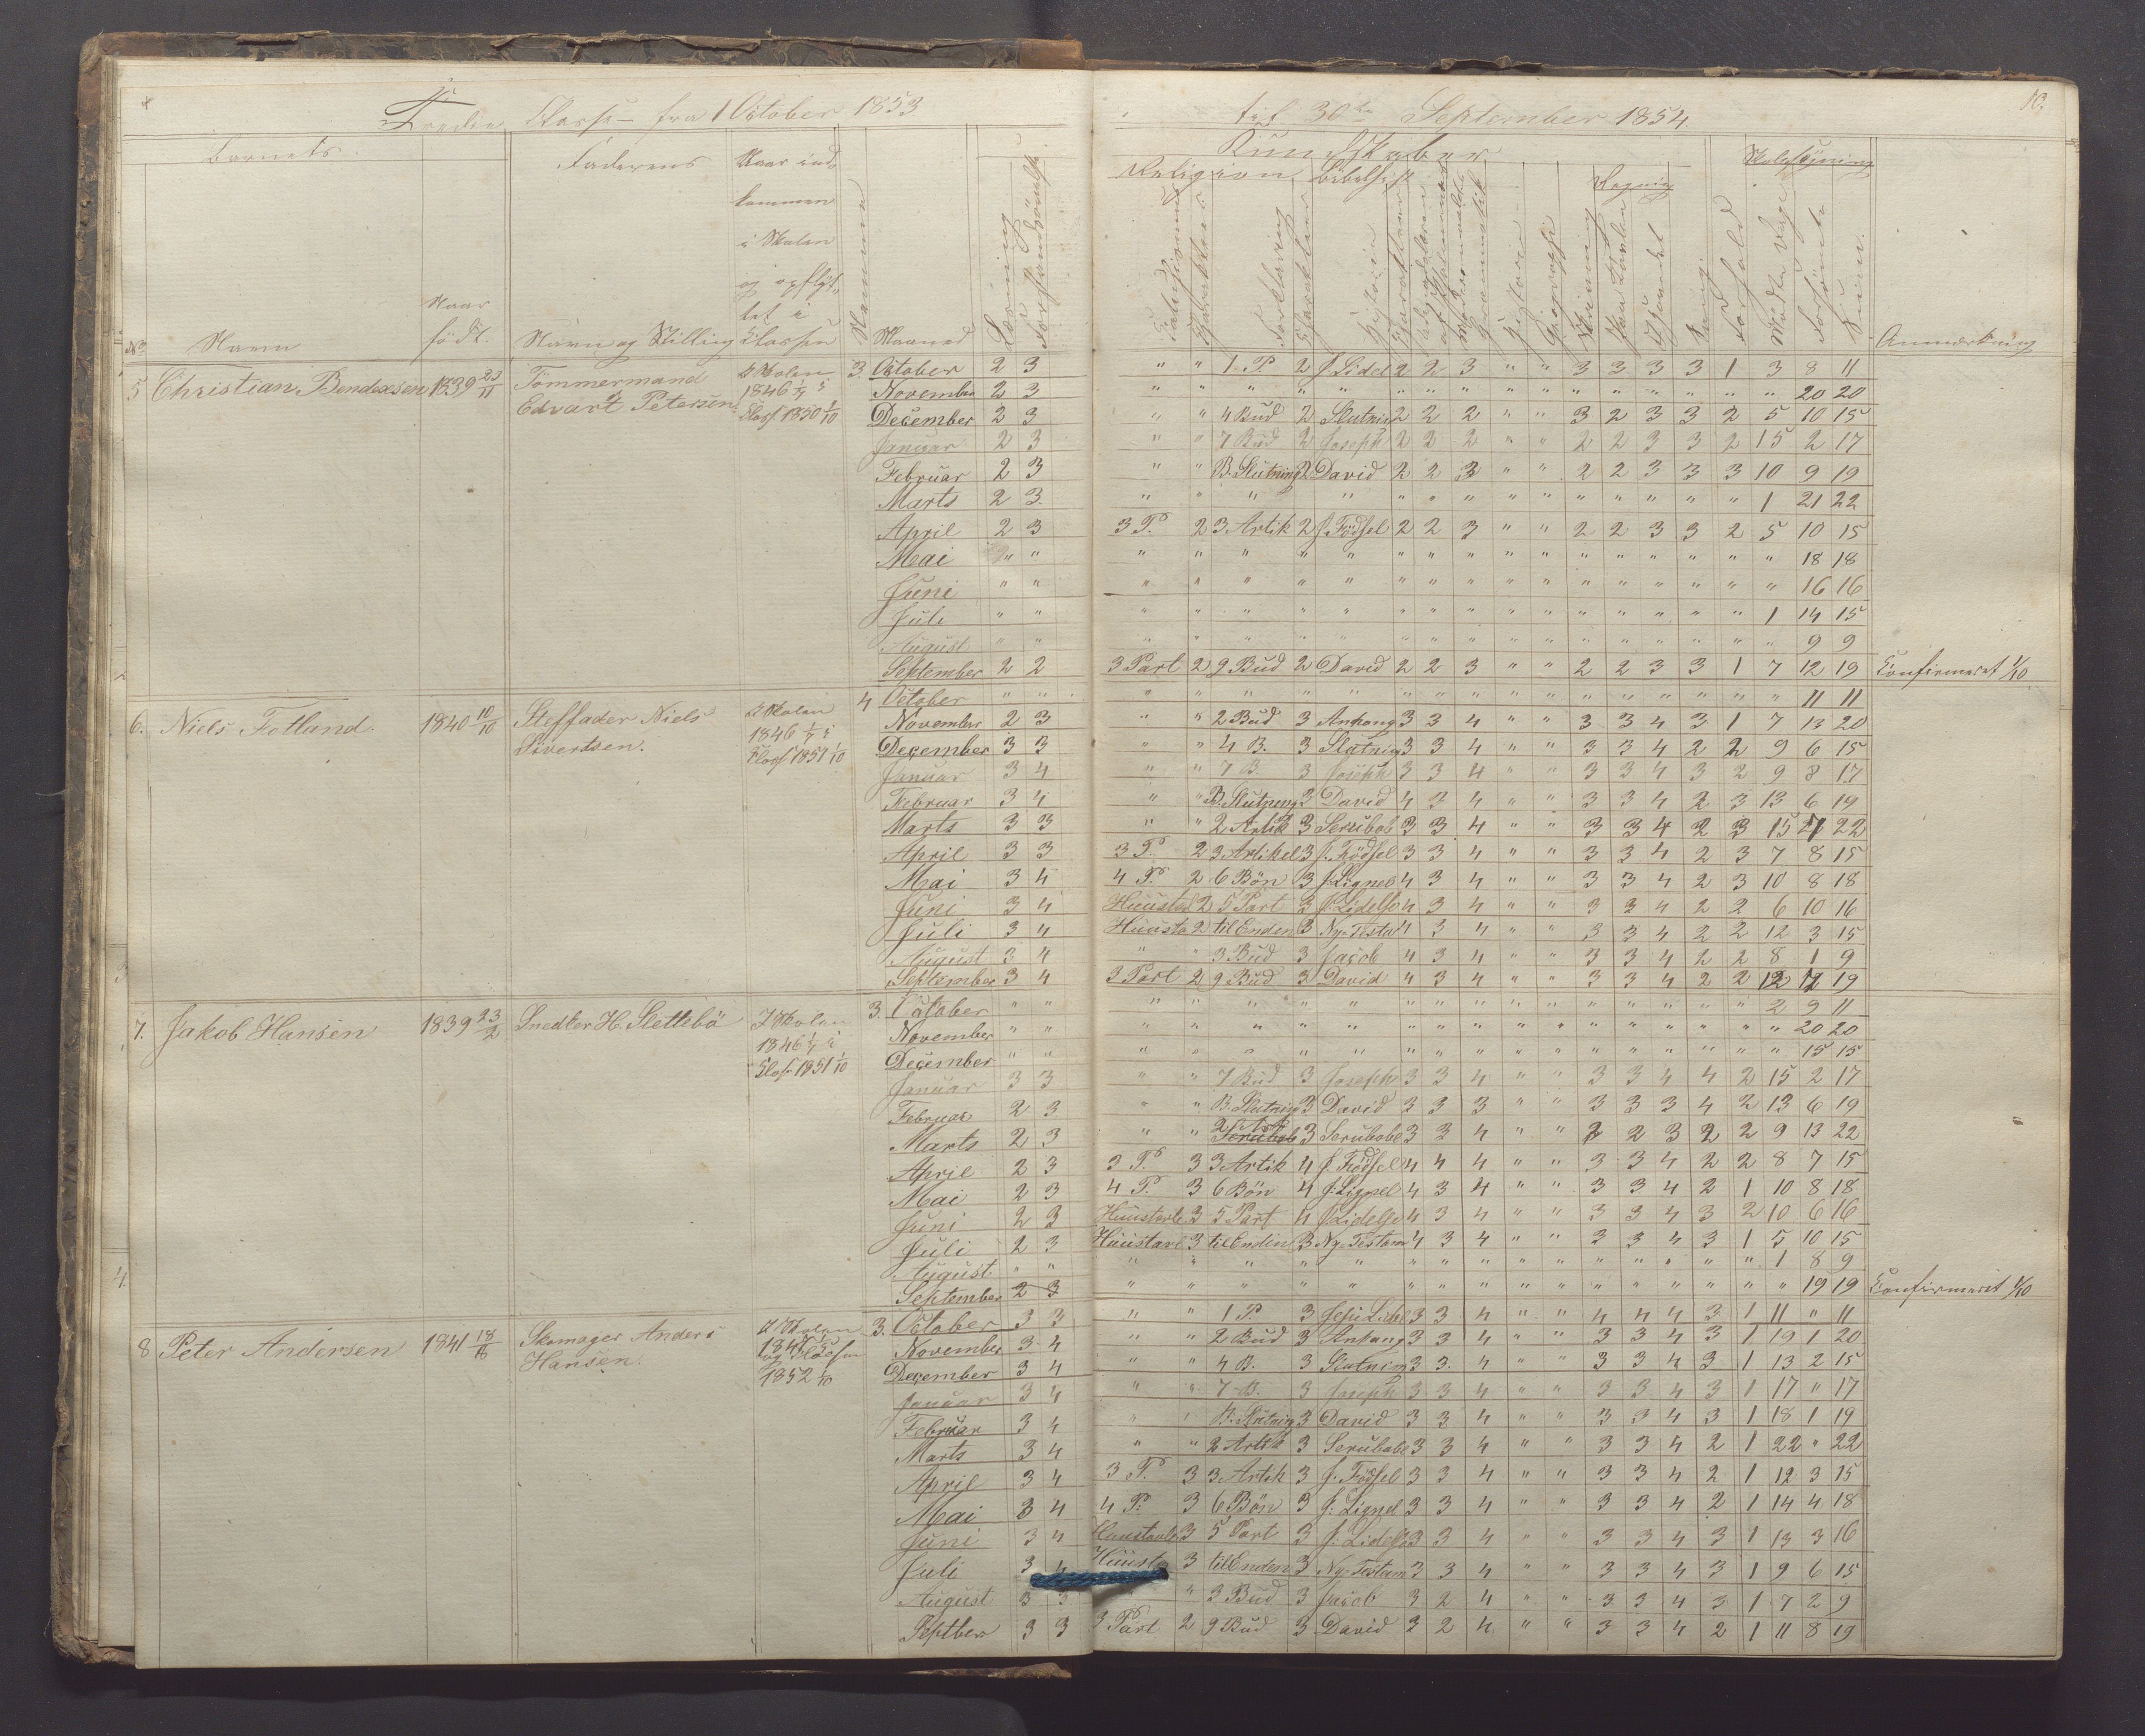 Tredie Classe fra 1 October 1853
til 30te September 1854
10.
Barnets
Faderens
Naar ind-
kommen
i Skolen
og opflyt-
tet i
Classen
No
Navn
Naar
födt.
Navn og Stilling
Nummer
Maaned
Læsning
Forstandsövelse
Kundskaber
Religion
Forklaring
Charakteer
Historie
Geographie
Regning
Skolesögning
Forhold
Mödte Dage
Forsömte
Summa
Anmærkning
5 Christian Bendixsen 1839 23/11 Tömmermand
Edvart Petersen
I Skolen
1846 1/7 i
Class. 1850 1/10
3. October 2 3 " " 1 P 2 J. Lidel 2 2 3 " " 3 3 3 3 1 3 8 11
November 2 3 " " " " " " " " " " " " " " " " 20 20
December 2 3 " " 4 Bud 2 Slutning 2 2 2 " " 3 2 3 3 2 5 10 15
Januar 2 3 " " 7 Bud 2 Joseph 2 2 2 " " 2 2 3 3 2 15 2 17
Februar 2 3 " " B. Slutning 2 David 2 2 3 " " 2 2 3 3 3 10 9 19
Marts 2 3 " " " " " " " " " " " " " " 1 21 22
April 2 3 3 P. 2 3 Artik 2 J. Födsel 2 2 3 " " 2 2 3 3 2 5 10 15
Mai " " " " " " " " " " " " " " " " " " 18 18
Juni " " " " " " " " " " " " " " " " " " 16 16
Juli " " " " " " " " " " " " " " " " " 1 14 15
August " " " " " " " " " " " " " " " " " " 9 9
September 2 2 3 Part 2 9 Bud 2 David 2 2 3 " " 2 2 3 3 1 7 12 19 Confirmeret 1/10
6. Niels Fotland. 1840 10/10 Steffader Niels
Sivertsen.
I Skolen
1846 1/7 i
Class. 1851 1/10
4 October " " " " " " " " " " " " " " " " " " 11 11
November 2 3 " " 2 Bud 3 Anhang 3 3 4 " " 3 3 4 3 1 7 13 20
December 3 3 " " 4 B. 3 Slutning 3 3 4 " " 3 3 4 2 2 9 6 15
Januar 3 4 " " 7 B 3 Joseph 3 3 4 " " 3 3 4 3 2 9 8 17
Februar 3 4 " " B. Slutning 3 David 4 3 4 " " 3 3 4 2 3 13 6 19
Marts 3 3 " " 2 Artik 3 Serubob 3 3 4 " " 3 3 4 2 3 15 7 22
April 3 3 3 P. 2 3 Artikel 3 J. Födsel 3 3 4 " " 3 3 4 2 3 7 8 15
Mai 3 4 4 P. 2 6 Bön 3 J. Lignel 4 3 4 " " 3 3 4 2 3 10 8 18
Juni 3 4 Huustavl 2 5 Part 3 J. Lidelse 4 3 4 " " 3 3 4 2 2 6 10 16
Juli 3 4 Huusta 2 til Enden 3 Ny-Testa 4 3 4 " " 3 3 4 2 2 12 3 15
August 3 4 " " 3 Bud 3 Jacob 4 3 4 " " 3 3 4 2 2 8 1 9
September 3 4 3 Part 2 9 Bud 3 David 4 3 4 " " 3 3 4 2 2 12 7 19
7. Jakob Hansen 1839 23/2 Snedker H. Slettebö
I Skolen
1846 1/7 i
Class. 1851 1/10
3. October " " " " " " " " " " " " " " " " " 2 9 11
November " " " " " " " " " " " " " " " " " " 20 20
December " " " " " " " " " " " " " " " " " " 15 15
Januar 3 3 " " 7 Bud 3 Joseph 3 3 4 " " 3 3 4 4 2 15 2 17
Februar 2 3 " " B. Slutning 3 David 3 3 3 " " 3 3 3 4 2 13 6 19
Marts 2 3 " " 2 Art 3 Serubabe 3 3 4 " " 2 2 3 2 2 9 13 22
April 2 3 3 P. 3 3 Artik 4 J. Födsel 4 4 4 " " 3 3 4 2 2 8 7 15
Mai 2 3 4 P. 3 6 Bön 4 J. Lignel 4 3 4 " " 3 3 4 2 1 10 8 18
Juni 2 3 Huustavle 3 5 Part 4 J. Lidelse 4 3 4 " " 3 3 4 3 2 10 6 16
Juli 2 3 Huustavl 3 til Enden 3 Ny-Testam 4 3 4 " " 3 3 4 3 1 5 10 15
August " " " " " " " " " " " " " " " " " 1 8 9
September 2 3 " " " " " " " " " " " " " " " " 19 19 Confirmeret 1/10
8 Peter Andersen 1841 Skomager Anders
Hansen.
I Skolen
og Classen
1852 1/10
3. October 3 3 " " 1 P. 3 Jesu Lidel 3 3 4 " " 4 4 4 3 1 11 " 11
November 3 4 " " 2 Bud 3 Anhang 3 3 4 " " 3 3 4 3 1 19 1 20
December 3 4 " " 4 B. 3 Slutning 3 3 4 " " 3 3 4 3 1 13 2 15
Januar 3 4 " " 7 B. 3 Joseph 3 3 4 " " 3 3 4 3 1 17 " 17
Februar 3 4 " " B. Slutning 3 David 3 3 4 " " 3 3 4 3 1 18 1 19
Marts 3 4 " " 2 Artik 3 Serubabe 3 3 4 " " 3 3 4 2 1 22 " 22
April 3 4 3 P. 3 3 Artik 3 J. Födsel 3 3 4 " " 3 3 4 2 1 12 3 15
Mai 3 4 4 P. 3 6 Bön 3 J. Lignel 3 3 4 " " 3 3 4 2 1 14 4 18
Juni 3 4 Huustavle 3 5 Part 3 J. Lidelse 3 3 4 " " 3 3 4 3 1 13 3 16
Juli 3 4 Huusta 3 til Enden 3 Ny-Testam 3 3 4 " " 3 3 4 3 1 9 6 15
August 3 3 " 3 Bud 3 Jacob 3 2 4 " " 3 3 4 3 1 7 2 9
Septber 3 3 3 Part 2 9 Bud 3 David 3 2 4 " " 3 3 4 2 1 11 8 19